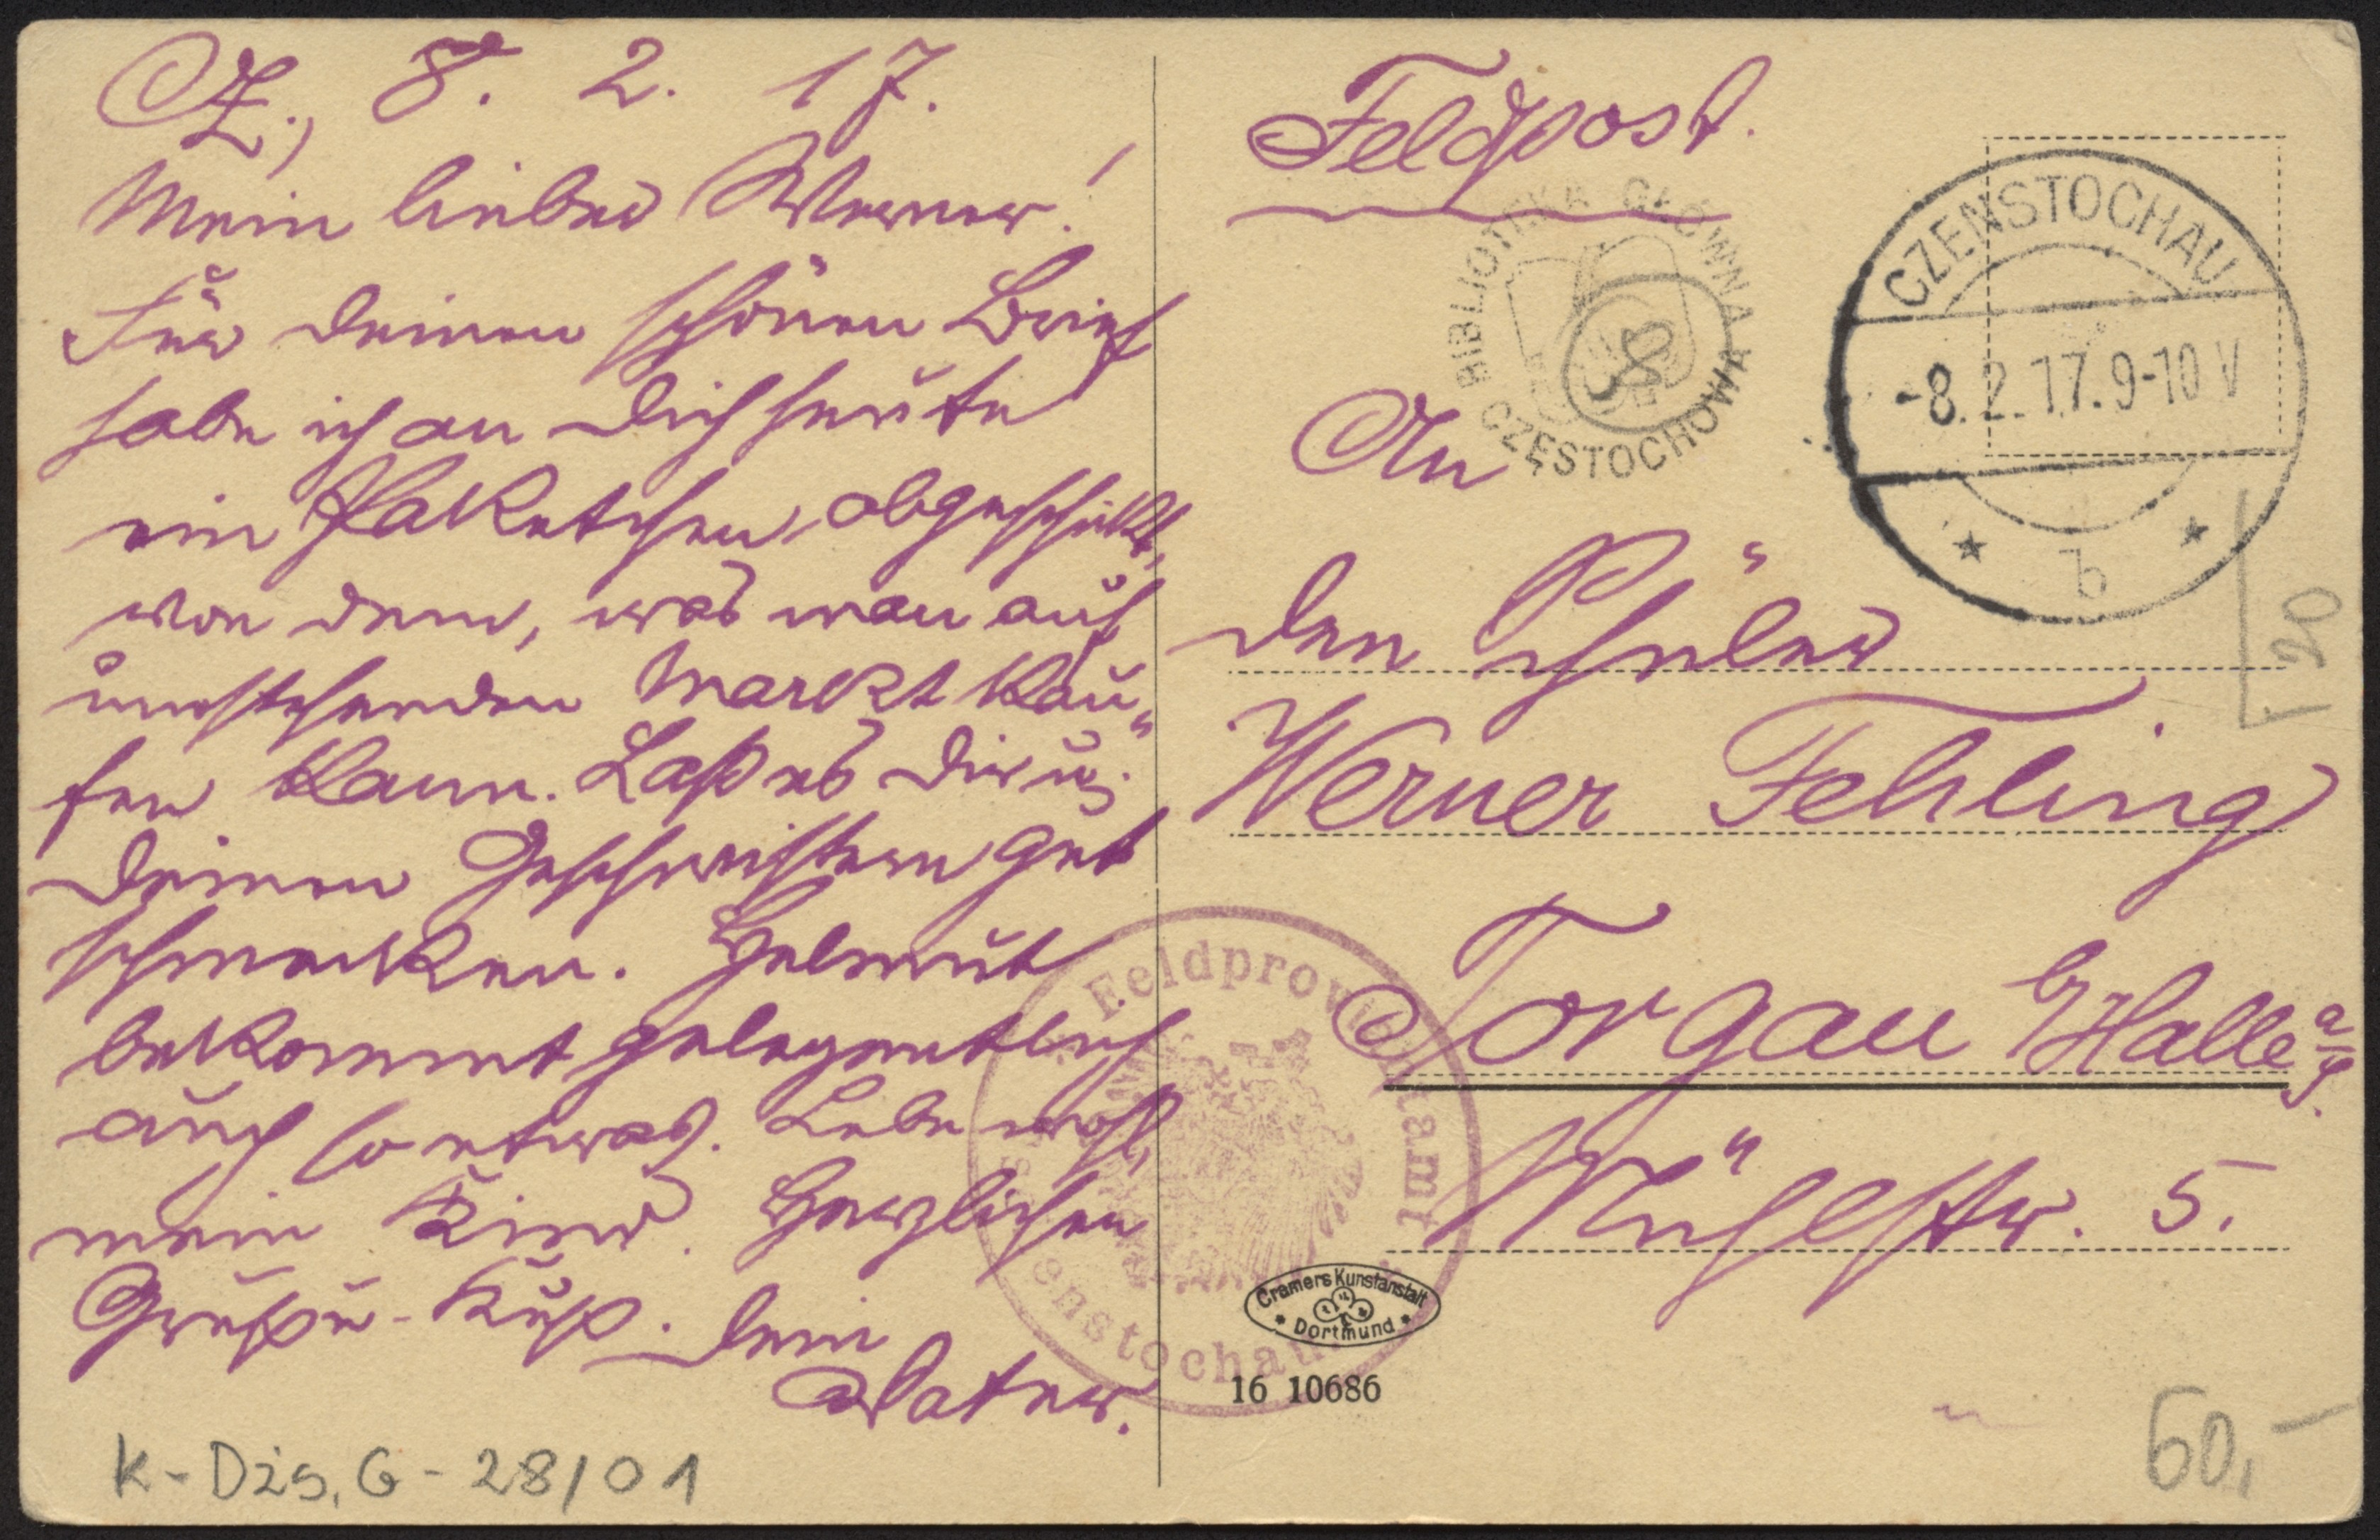 Cz., 8. 2. 17.
Mein lieber Werner!
Für deinen schönen Brief
habe ich an Dich heute
ein Paketchen abgeschickt,
von dem, was man auf
umstehenden Markt kau-
fen kann. Laß es Dir u.
Deinen Geschwistern gut
schmecken. Helmut
bekommt gelegentlich
auch so etwas. Lebe wohl,
mein Kind. Herzlichen
Gruß u. Kuß. Dein
Vater.
K-Dzs, G-28/01
Feldpost.
BIBLIOTEKA GŁÓWNA
CZĘSTOCHOWA
CZENSTOCHAU
-8.2.17.9-10 V
* b *
An
den Schüler
Werner Fehling
Torgau b/Halle a/S.
Mühlstr. 5.
Feldproviantamt
Czenstochau
Cramers Kunstanstalt
* Dortmund *
16 10686
20
60,-